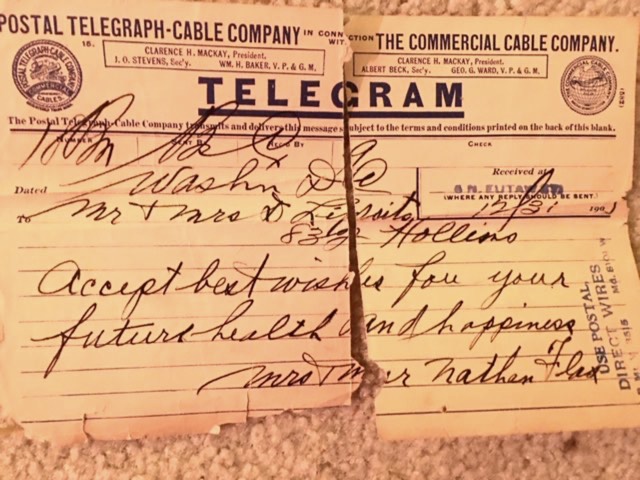 POSTAL TELEGRAPH-CABLE COMPANY IN CONN ECTION WITH THE COMMERCIAL CABLE COMPANY.
CLARENCE H. MACKAY, President.
J. O. STEVENS, Sec'y. WM. H. BAKER, V. P. & G. M.
CLARENCE H. MACKAY, President.
ALBERT BECK, Sec'y. GEO. G. WARD, V. P. & G. M.
POSTAL TELEGRAPH-CABLE COMPANY
CABLES.
TELEGRAM
The Postal Telegraph-Cable Company transmits and delivers this message subject to the terms and conditions printed on the back of this blank.
NUMBER SENT BY REC'D BY CHECK
Received at
Dated Washn DC
S. N. EUTAW ST.
(WHERE ANY REPLY SHOULD BE SENT.)
12/31 190
To Mr + Mrs D
Hollins
Accept best wishes for your
future health and happiness
Mrs + Nathan Flax
USE POSTAL
DIRECT WIRES